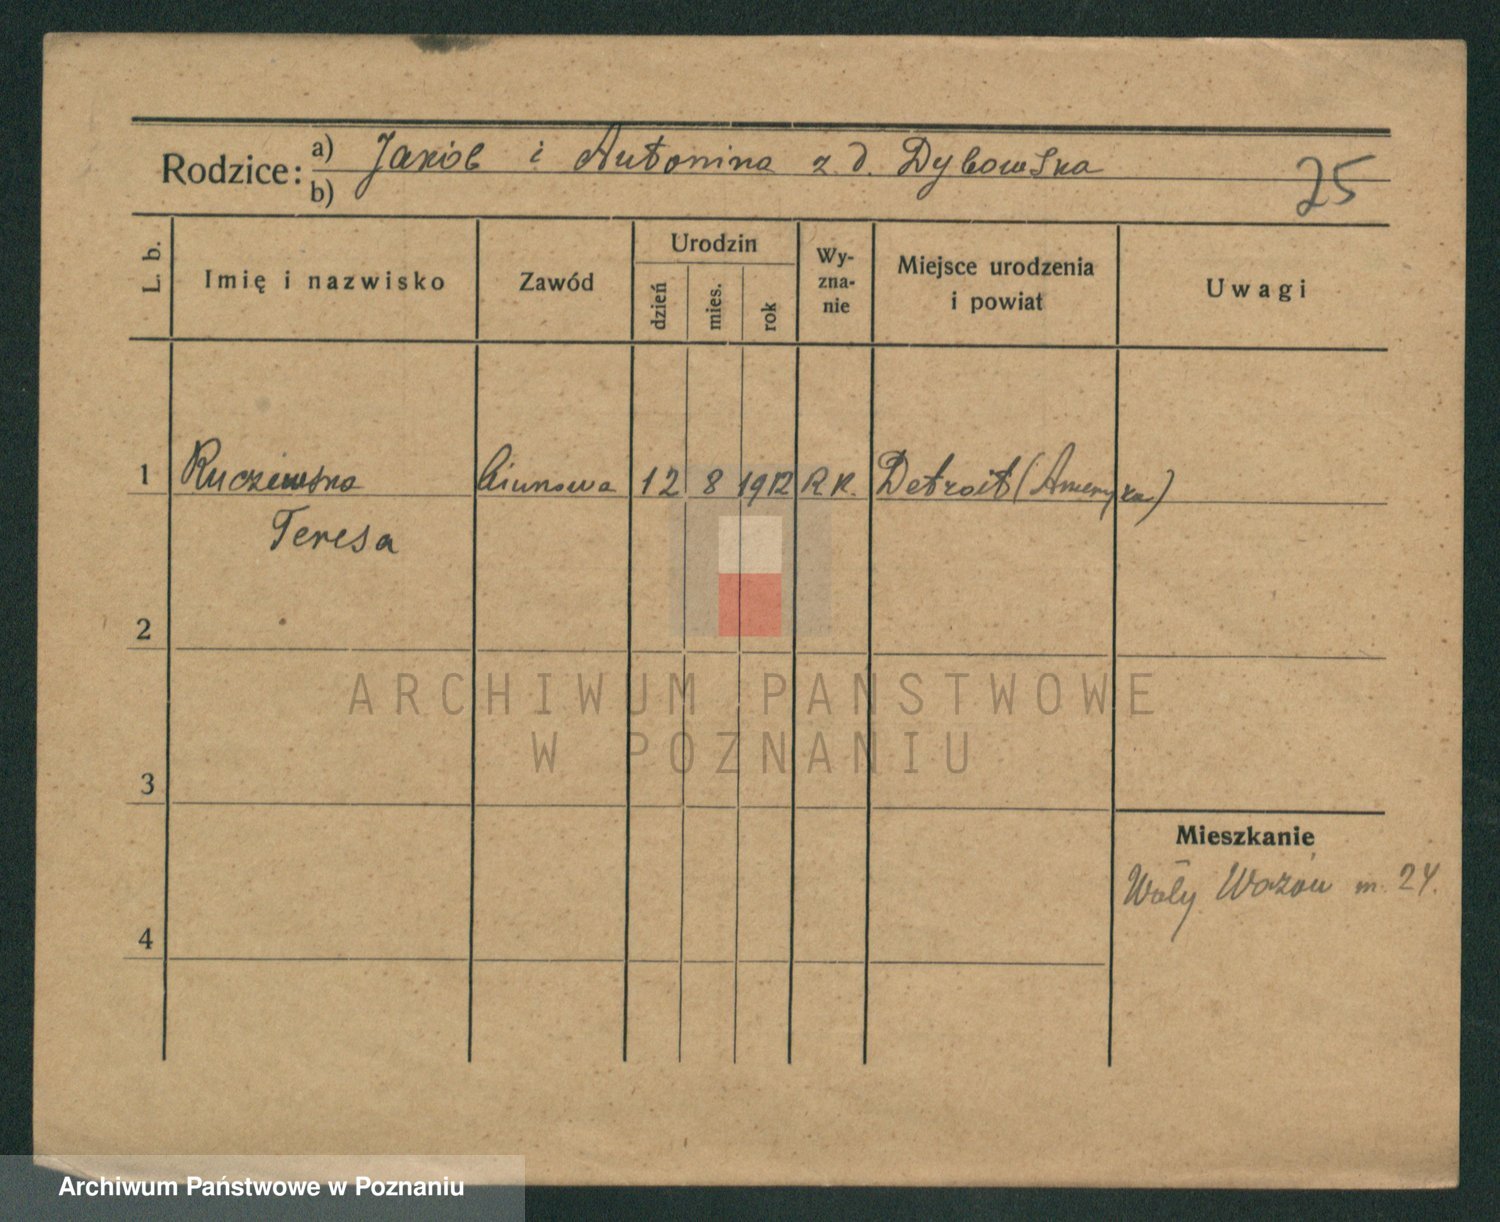 Rodzice: a) Jakób i Antonina z d. Dybowska
b)
25
L. b.
Imię i nazwisko
Zawód
Urodzin
dzień
mies.
rok
Wy-
zna-
nie
Miejsce urodzenia
i powiat
Uwagi
1 Ruczewska 12 8 1912 R. K. Detroit (Ameryka)
Teresa
2
3
4
Mieszkanie
Wały m. 24.
ARCHIWUM PAŃSTWOWE
W POZNANIU
Archiwum Państwowe w Poznaniu